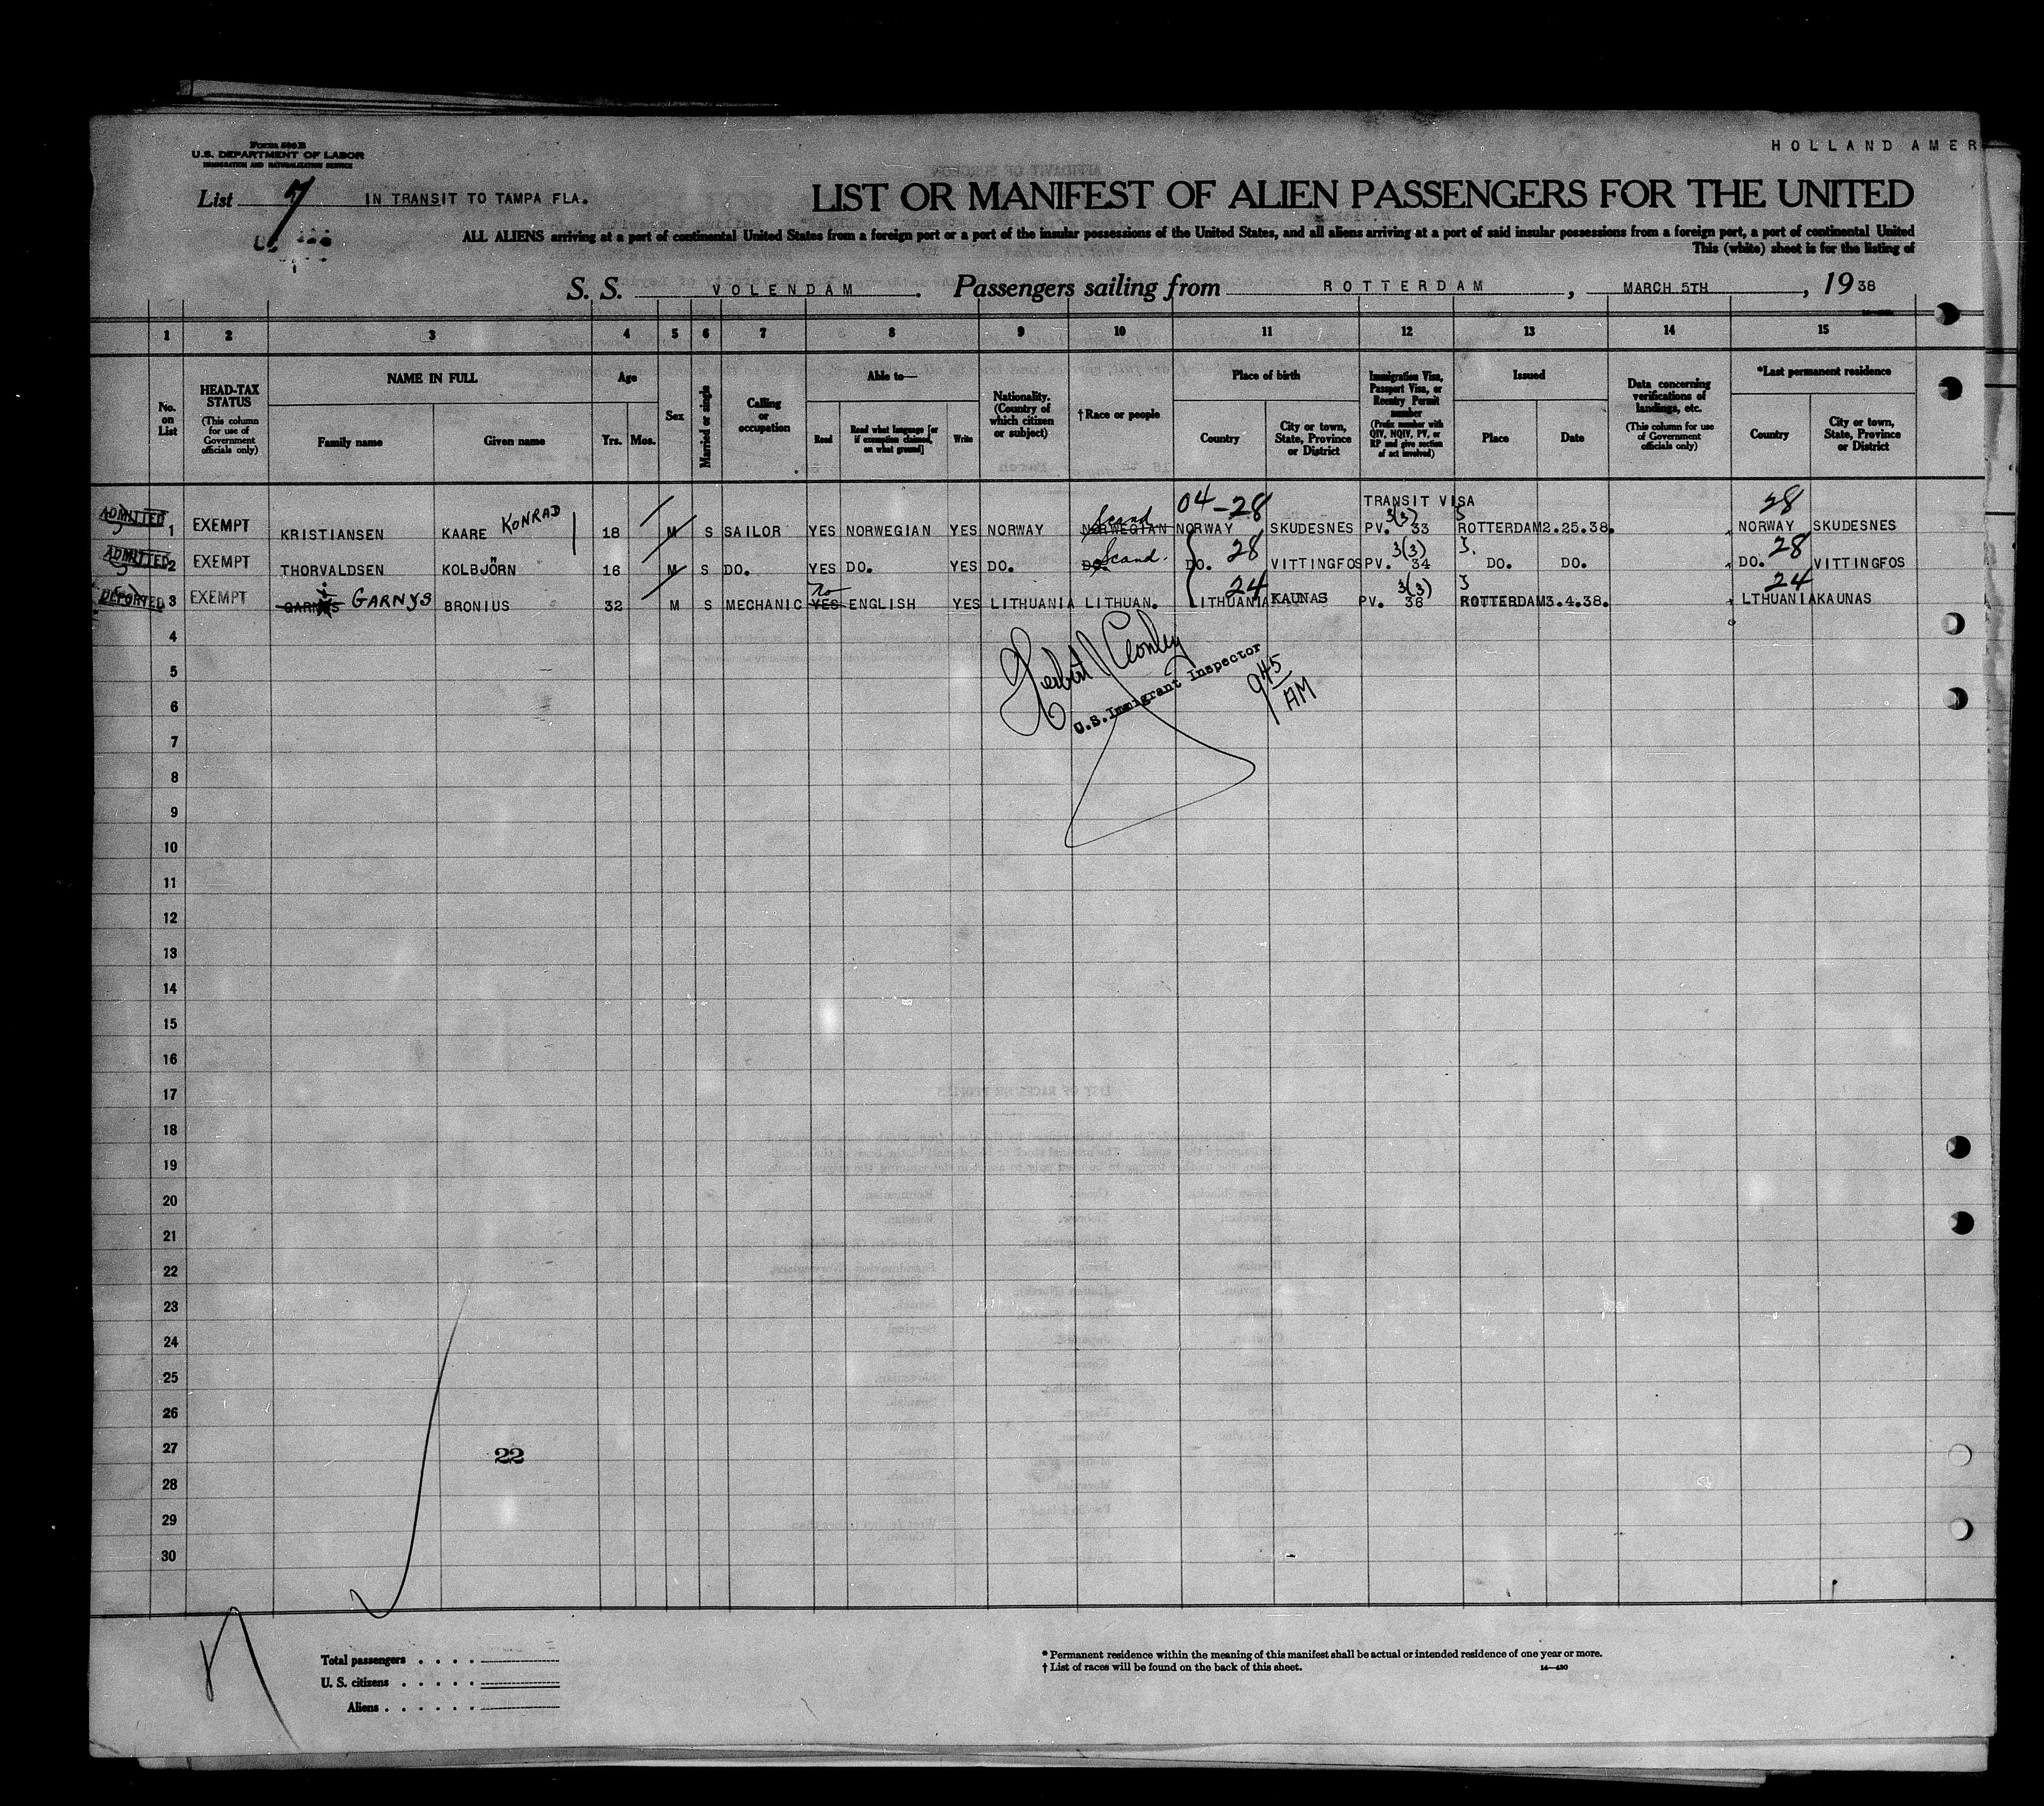 Form 500 B
U.S. DEPARTMENT OF LABOR
IMMIGRATION AND NATURALIZATION SERVICE
HOLLAND AMER
List 7 IN TRANSIT TO TAMPA FLA.
LIST OR MANIFEST OF ALIEN PASSENGERS FOR THE UNITED
ALL ALIENS arriving at a port of continental United States from a foreign port or a port of the insular possessions of the United States, and all aliens arriving at a port of said insular possessions from a foreign port, a port of continental United
This (white) sheet is for the listing of
S. S. VOLENDAM. Passengers sailing from ROTTERDAM, MARCH 5TH, 1938
1 2 3 4 5 6 7 8 9 10 11 12 13 14 15
No. on List
HEAD-TAX STATUS (This column for use of Government officials only)
NAME IN FULL
Family name Given name
Age
Yrs. Mos.
Sex
Married or single
Calling or occupation
Able to—
Read Read what language [or if exemption claimed, on what ground] Write
Nationality. (Country of which citizen or subject)
†Race or people
Place of birth
Country City or town, State, Province or District
Immigration Visa, Passport Visa, or Reentry Permit number (Prefix number with QIV, NQIV, PV, or RP and give section of act involved)
Issued
Place Date
Data concerning verifications of landings, etc. (This column for use of Government officials only)
*Last permanent residence
Country City or town, State, Province or District
04-28 TRANSIT VISA 28
ADMITTED 1 EXEMPT KRISTIANSEN KAARE KONRAD 18 M S SAILOR YES NORWEGIAN YES NORWAY NORWEGIAN Scand NORWAY SKUDESNES PV. 3(3) 33 ROTTERDAM 2.25.38. NORWAY SKUDESNES
ADMITTED 2 EXEMPT THORVALDSEN KOLBJÖRN 16 M S DO. YES DO. YES DO. DO. Scand. DO. 28 VITTINGFOS PV. 3(3) 34 DO. DO. DO. 28 VITTINGFOS
DEPORTED 3 EXEMPT GARNYS BRONIUS 32 M S MECHANIC YES No ENGLISH YES LITHUANIA LITHUAN. LITHUANIA 24 KAUNAS PV. 3(3) 36 ROTTERDAM 3.4.38. LTHUANIA 24 KAUNAS
4
5
6
7
8
9
10
11
12
13
14
15
16
17
18
19
20
21
22
23
24
25
26
27
28
29
30
Herbert J Conley
U.S. Immigrant Inspector
9 45 AM
22
Total passengers
U. S. citizens
Aliens
* Permanent residence within the meaning of this manifest shall be actual or intended residence of one year or more.
† List of races will be found on the back of this sheet. 14—430